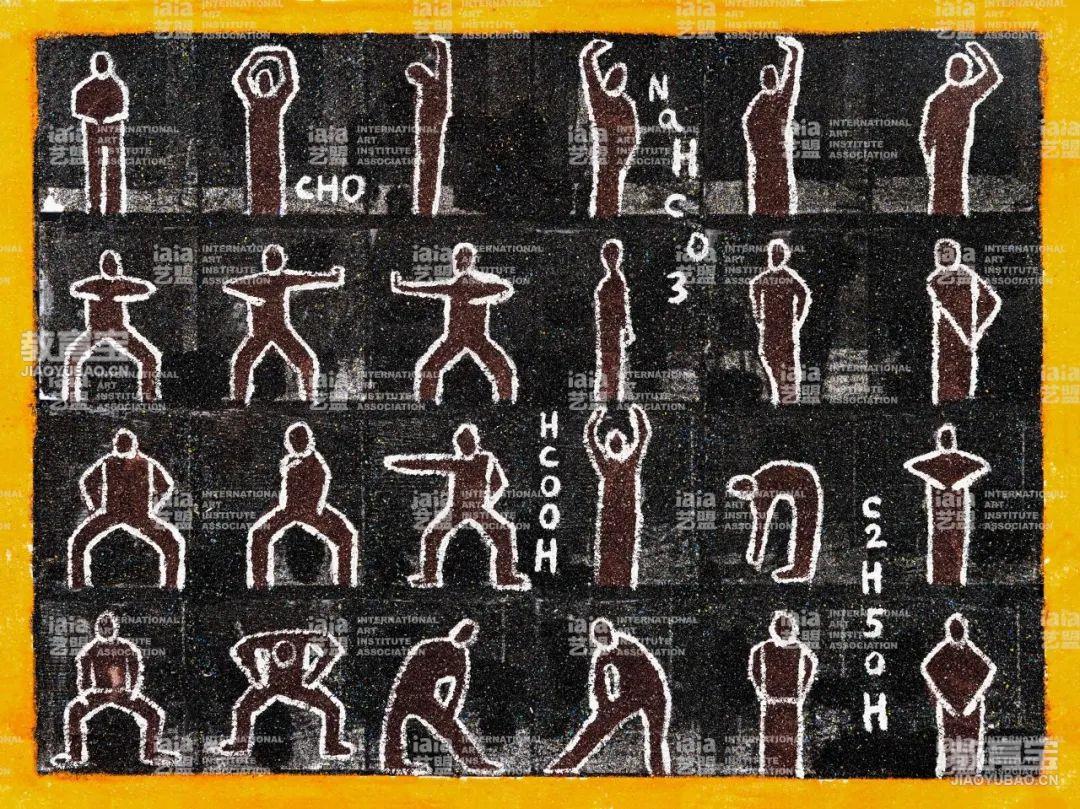 CHO
NaHCO3
HCOOH
C2H5OH
iaia 艺盟
INTERNATIONAL
ART
INSTITUTE
ASSOCIATION
教育宝
JIAOYUBAO.CN
教育宝
JIAOYUBAO.CN